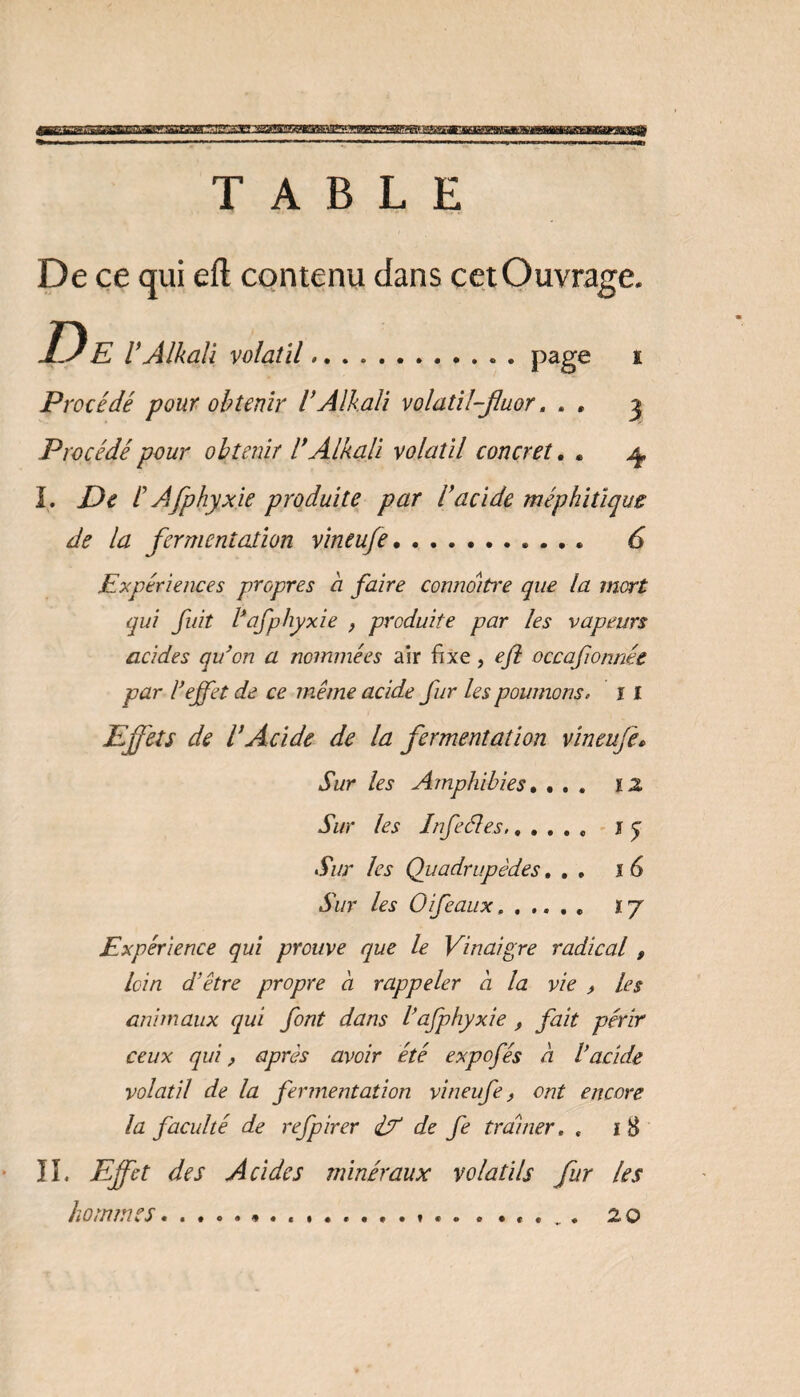 TABLE
De ce qui eſt contenu dans cet Ouvrage.
DE l'Alkali volatil............. page 1
Procédé pour obtenir l'Alkali volatil-fluor. . . 3
Procédé pour obtenir l'Alkali volatil concret. . 4
I. De l'Aſphyxie produite par l'acide méphitique
de la fermentation vineuſe. . . . . . . . . . . 6
Expériences propres à faire connoître que la mort
qui ſuit l'aſphyxie, produite par les vapeurs
acides qu'on a nommées air fixe, eſt occaſionnée
par l'effet de ce même acide ſur les poumons. 11
Effets de l'Acide de la fermentation vineuſe.
Sur les Amphibies. . . . 12
Sur les Inſectes. . . . . . 15
Sur les Quadrupèdes. . . 16
Sur les Oiſeaux. . . . . . 17
Expérience qui prouve que le Vinaigre radical,
loin d'être propre à rappeler à la vie, les
animaux qui ſont dans l'aſphyxie, fait périr
ceux qui, après avoir été expoſés à l'acide
volatil de la fermentation vineuſe, ont encore
la faculté de reſpirer & de ſe traîner. . 18
II. Effet des Acides minéraux volatils ſur les
hommes. . . . . . . . . . . . . . . . . . . . . . . 20